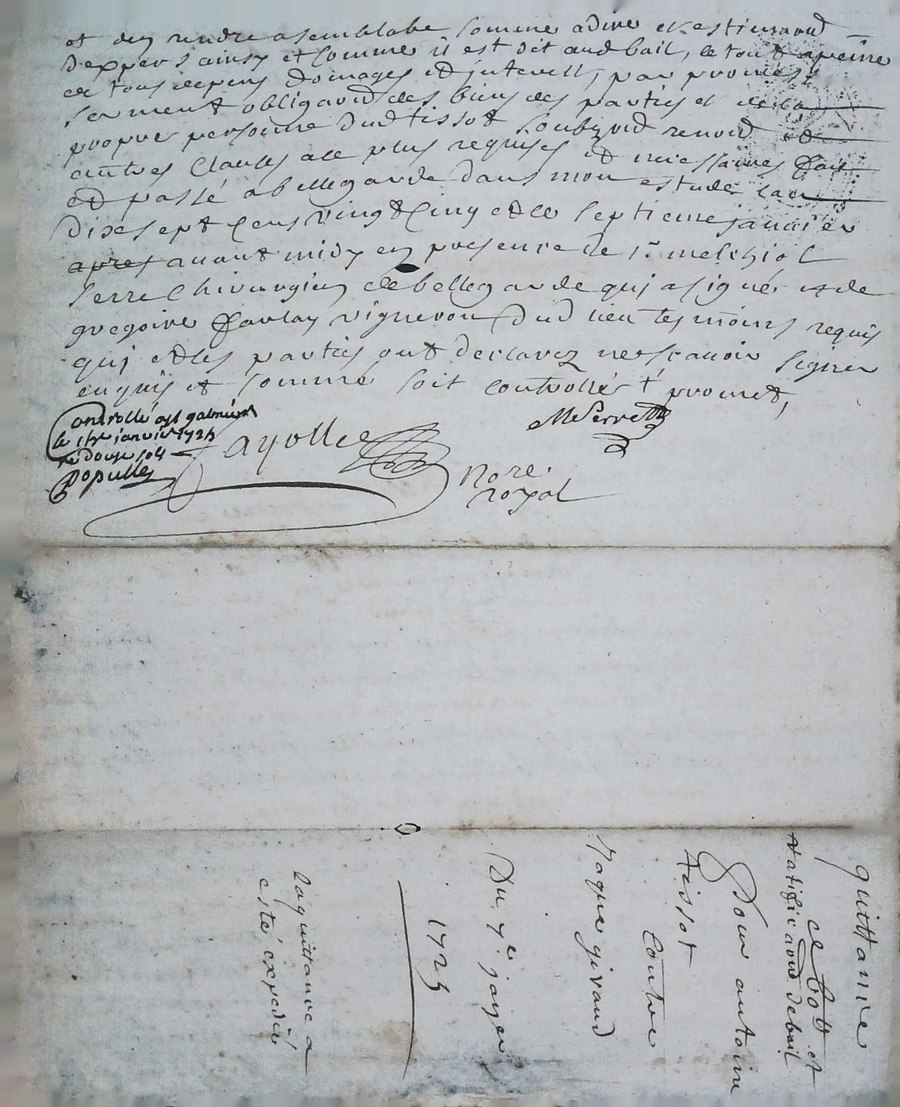 et den rendre a semblabe somme a dire et estimaõn
dexpers ainsy et comme il est dit aud bail, le tout a peine
de tous depens domages et interest, par promesse
serment obligaõn des biens des parties et de la
propre personne dud tissot soubzmõn renonõn et
autres Clauses a ce plus requises et necessaires fait
et passé a bellegarde dans mon estude lan
dixsept Cens vingt Cinq et le septieme janvier
apres avant midy en presence de sr melchiol
serre Chirurgien de bellegarde qui a signé et de
gregoire vigneron dud lieu tesmoins requis
qui et les parties ont declarez ne scavoir signer
enquis et comme soit controllé t promet,
Controllé a st galmier
le janvier 1725
re douze sols
Populle
MSerre
fayolle
No.re
royal
quittance
et
ratificaõn de bail
Pour antoine
tissot
Contre
Jaque giraud
Du 7e janvier
1725
la quittance a
esté expediée